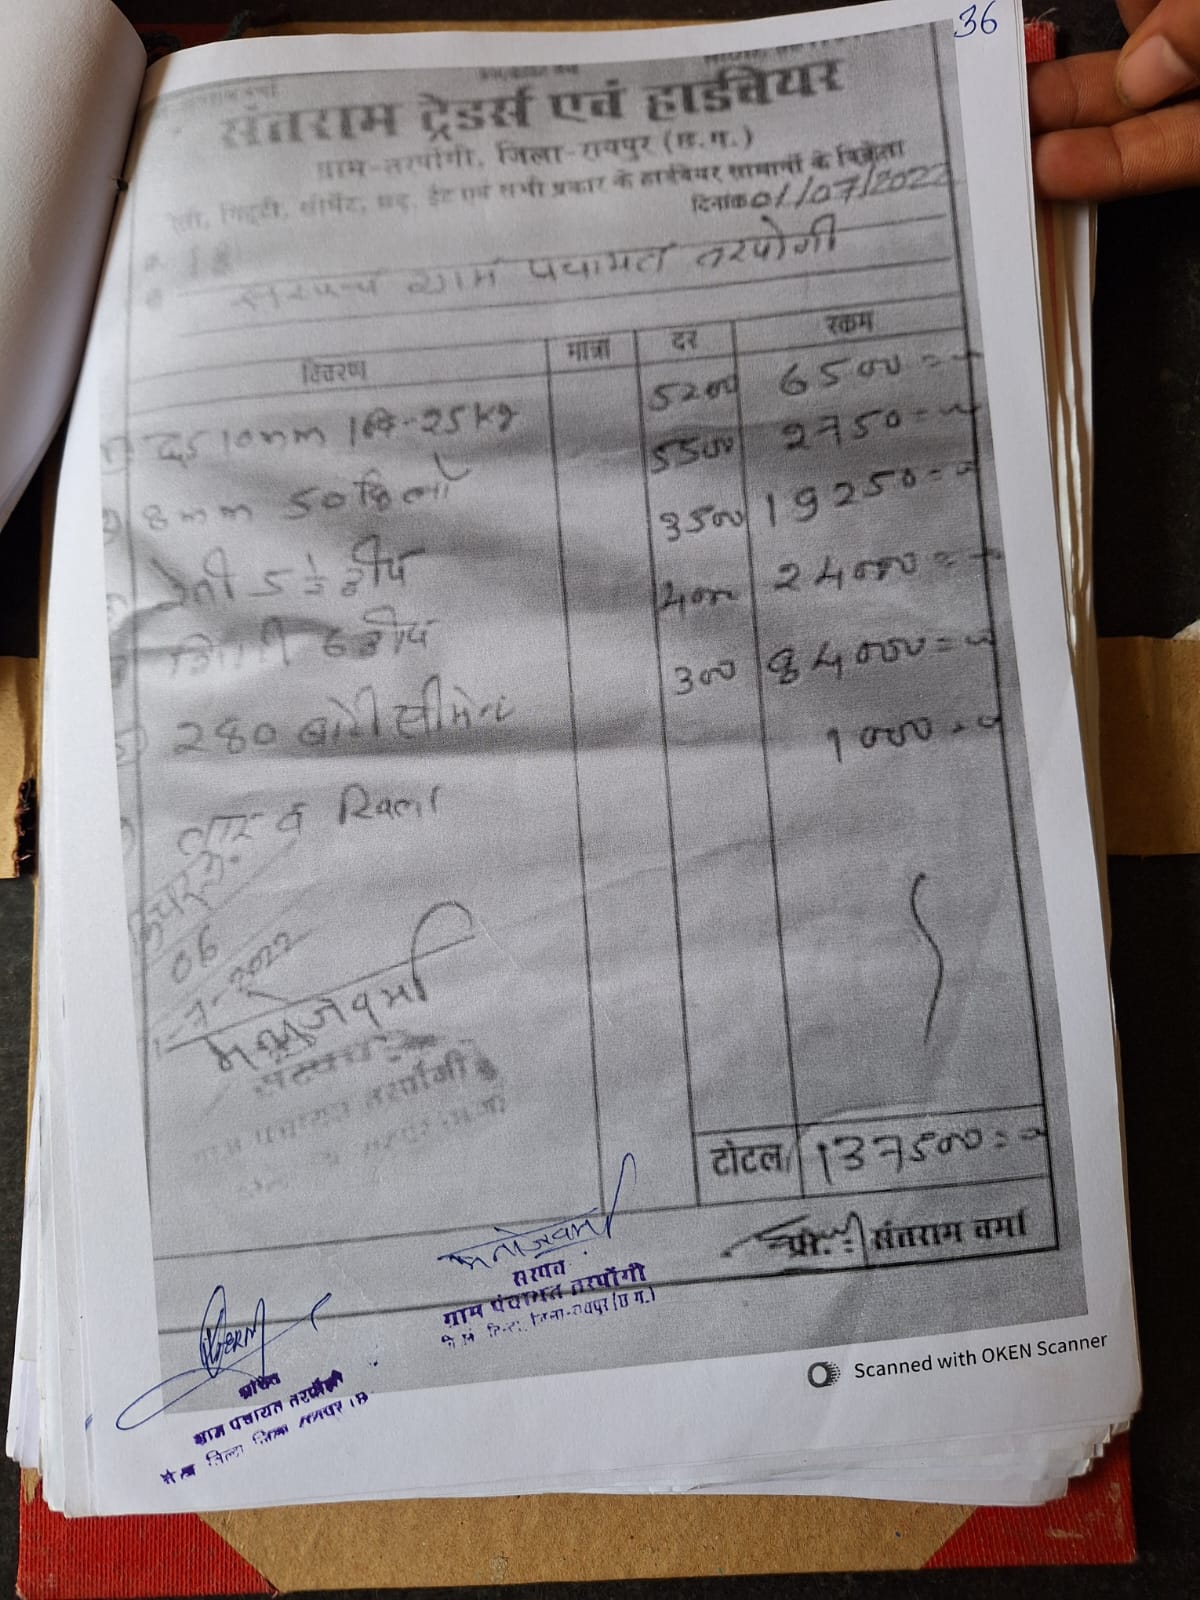 36
संतराम ट्रेडर्स एवं हार्डवेयर
ग्राम-तरपोंगी, जिला-रायपुर (छ.ग.)
रेती, गिट्टी, सीमेंट, छड़, ईंट एवं सभी प्रकार के हार्डवेयर सामानों के विक्रेता
दिनांक 01/07/2022
सरपंच ग्राम पंचायत तरपोंगी
विवरण मात्रा दर रकम
10mm 25kg 5200 6500=00
8mm 50 किलो 5500 2750=00
रेती 5½ हीप 3500 19250=00
6 हीप 4000 24000=00
280 बोरी सीमेन्ट 300 84000=00
तार व 1000=00
06
2022
मनोज वर्मा
सरपंच
ग्राम पंचायत तरपोंगी
टोटल 137500=00
प्रो. संतराम वर्मा
मनोज वर्मा
सरपंच
ग्राम पंचायत तरपोंगी
जिला-रायपुर (छ.ग.)
ग्राम पंचायत तरपोंगी
Scanned with OKEN Scanner